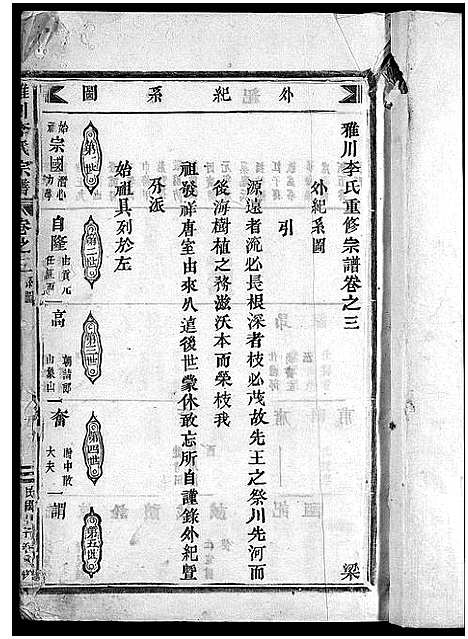 外紀系圖
雅川李氏重修宗譜卷之三
外紀系圖
引
源遠者流必長根深者枝必茂故先王之祭川先河而
後海樹植之務滋沃本而榮枝我
祖發祥唐室由來八遠後世蒙休敢忘所自謹錄外紀暨
分派
始祖具列於左
梁
第一世
第二世
第三世
第四世
第五世
始祖 宗國 潛心力學
自隆 由貢元任
高 朝請郎 山
奮 中散大夫
謂